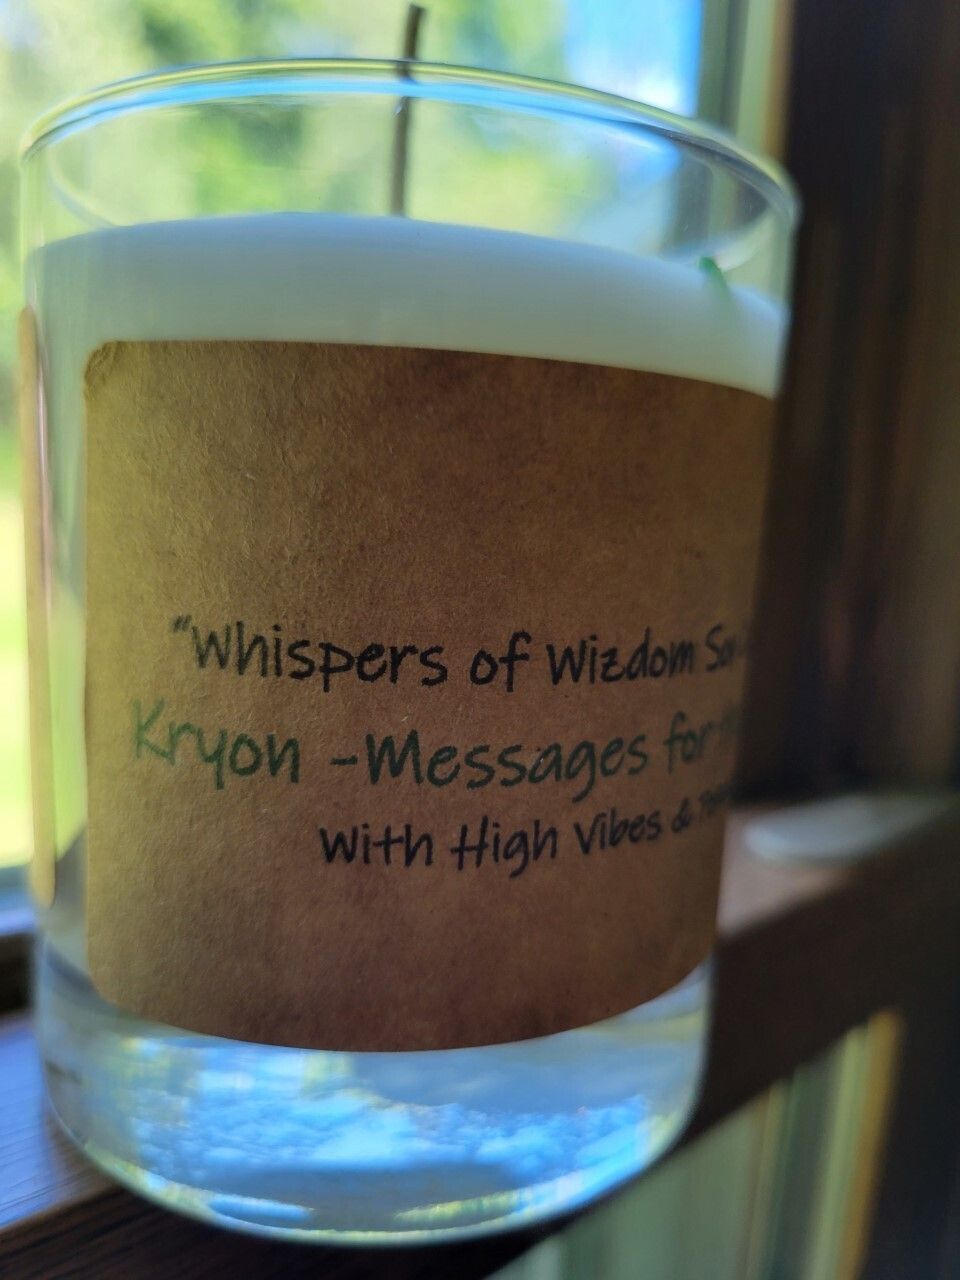 "Whispers of Wizdom
Kryon -Messages for
With High Vibes &